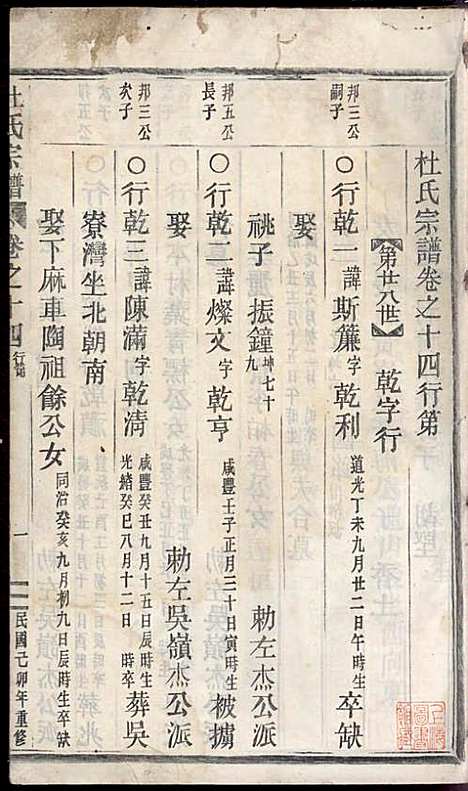 杜氏宗譜卷之十四行第
【第廿八世】 乾字行
邦三公嗣子
〇行乾一諱斯簾字乾利 道光丁未九月廿二日午時生 卒缺
娶
祧子 振鐘 坤七十九 勅左杰公派
邦五公長子
〇行乾二諱燦文字乾亨 咸豐壬子正月三十日寅時生 被擄
娶 勅左吳嶺杰公派
邦三公次子
〇行乾三諱陳滿字乾清 咸豐癸丑九月十五日辰時生 光緒癸巳八月十二日 時卒 葬吳
寮灣坐北朝南
娶下麻車陶祖餘公女 同治癸亥九月初九日辰時生 卒缺
杜氏宗譜 卷之十四 行第 一 民國己卯年重修